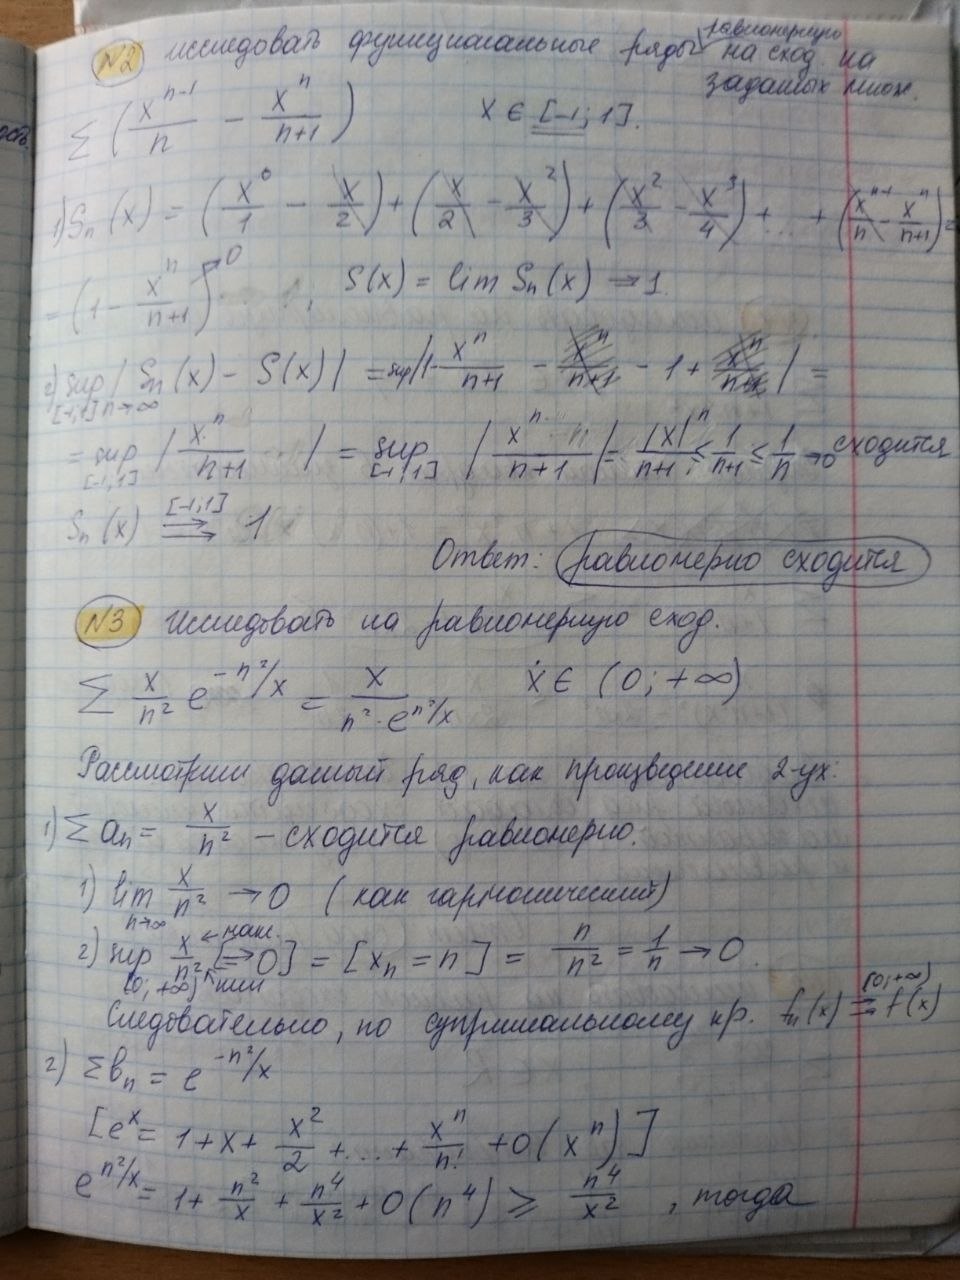 N2 исследовать функциональные ряды на равномерную сход. на
заданых множ.
∑ (x^{n-1}/n - x^n/(n+1)) x ∈ [-1; 1].
1) Sn(x) = (x^0/1 - x/2) + (x/2 - x^2/3) + (x^2/3 - x^3/4) + ... + (x^{n-1}/n - x^n/(n+1)) =
= (1 - x^n/(n+1))→0, S(x) = lim Sn(x) → 1.
2) sup_{[-1,1] n→∞} |Sn(x) - S(x)| = sup|1 - x^n/(n+1) - 1 | =
= sup_{[-1,1]} |x^n/(n+1)| = sup_{[-1,1]} |x^n/(n+1)| = |x|^n/(n+1) ≤ 1/(n+1) ≤ 1/n → 0 сходится
Sn(x) ⇉^{[-1,1]} 1
Ответ: равномерно сходится
N3 Исследовать на равномерную сход.
∑ x/n^2 e^{-n^2/x} = x/(n^2 · e^{n^2/x}) x ∈ (0; +∞)
Рассмотрим данный ряд, как произведение 2-ух:
1) ∑ an = x/n^2 - сходится равномерно.
1) lim_{n→∞} x/n^2 → 0 (как гармонический)
2) sup_{(0; +∞)} x/n^2 ← мак. ↖ мин [→ 0] = [xn = n] = n/n^2 = 1/n → 0.
Следовательно, по супримальному кр. fn(x) ⇉^{(0;+∞)} f(x)
2) ∑ bn = e^{-n^2/x}
[e^x = 1 + x + x^2/2 + ... + x^n/n! + O(x^n)]
e^{n^2/x} = 1 + n^2/x + n^4/x^2 + O(n^4) ⩾ n^4/x^2, тогда